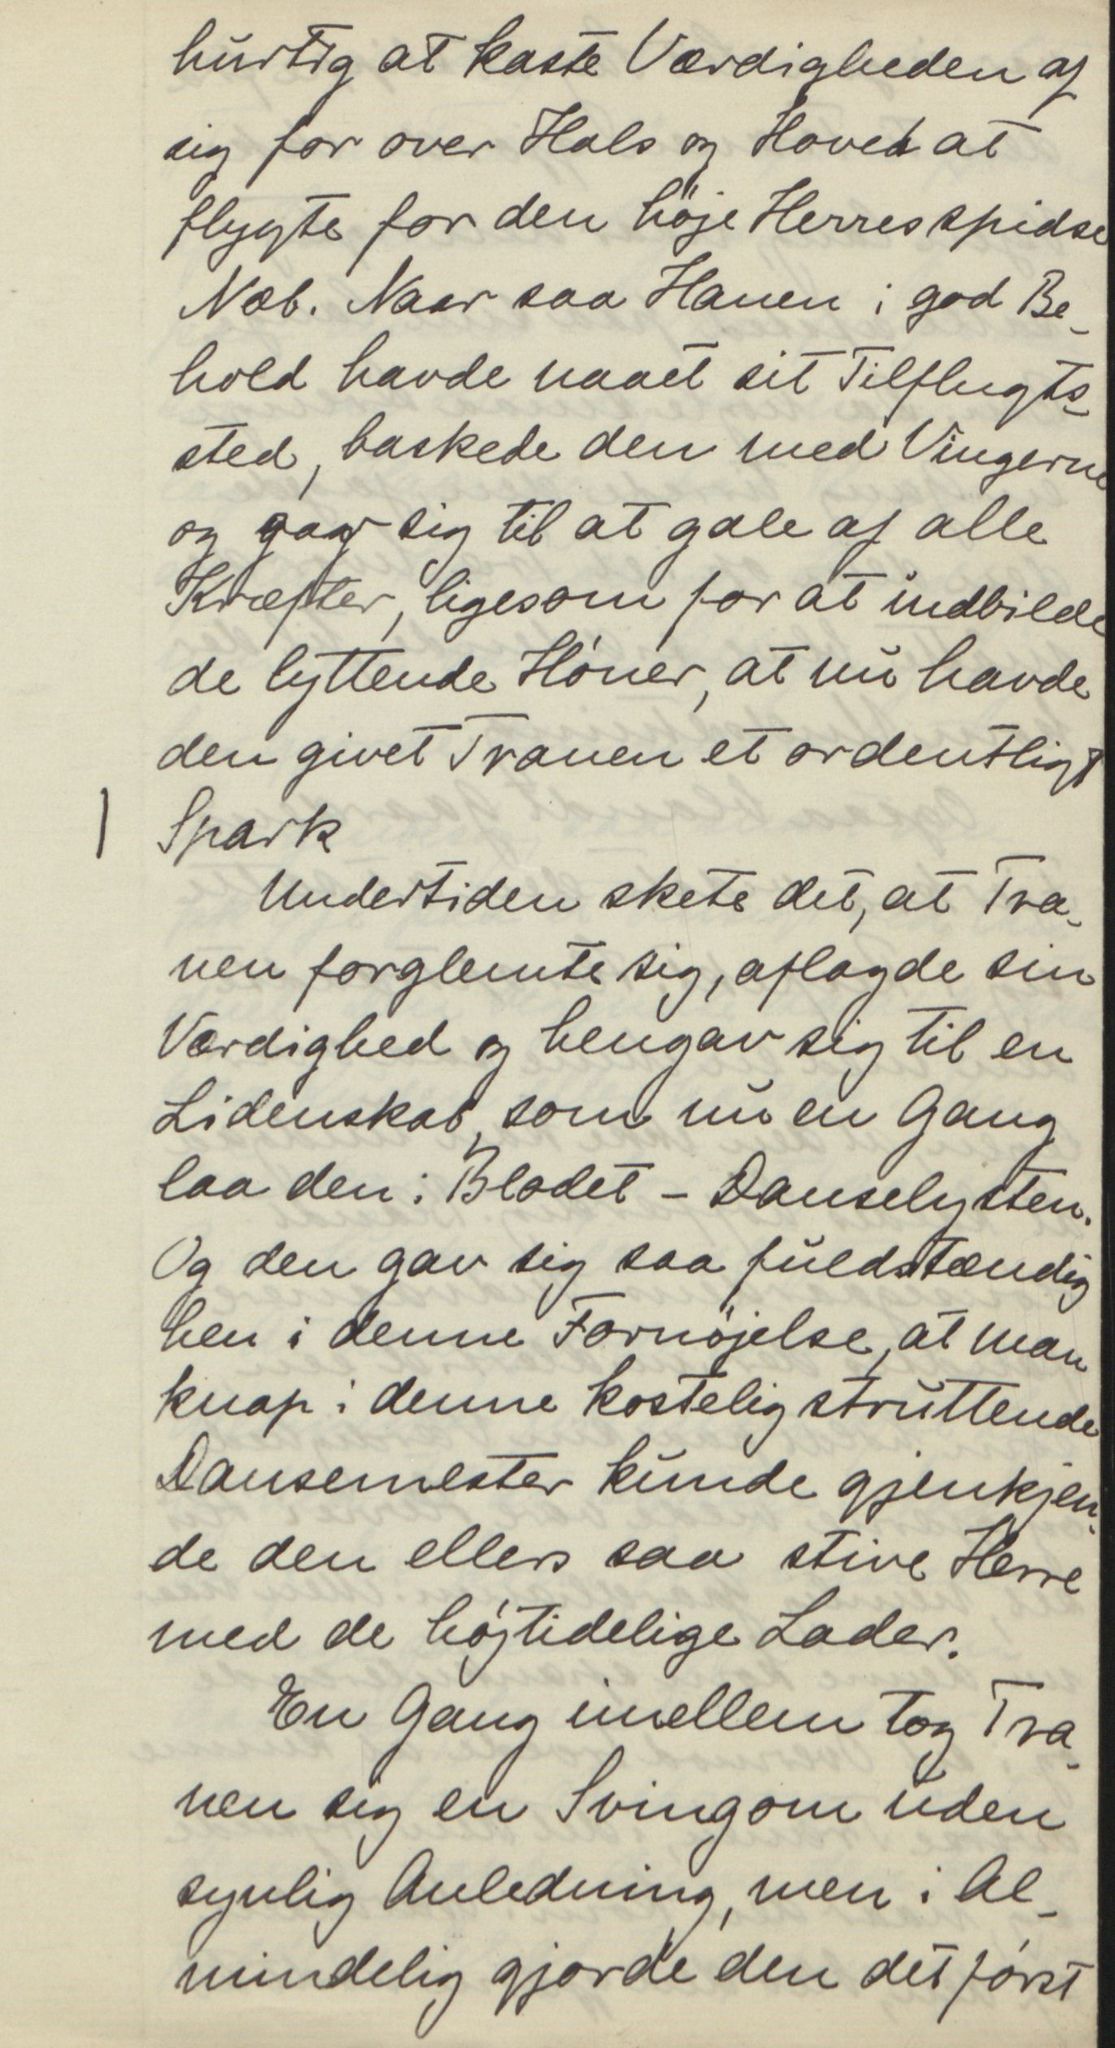 hurtig at kaste Værdigheden af
sig for over Hals og Hoved at
flygte for den höje Herres spidse
Næb. Naar saa Hanen i god Be-
hold havde naaet sit Tilflugts-
sted, baskede den med Vingerne
og gav sig til at gale af alle
Kræfter, ligesom for at indbilde
de lyttende Höner, at nu havde
den givet Tranen et ordentligt
Spark
Undertiden skete det, at Tra-
nen forglemte sig, aflagde sin
Værdighed og hengav sig til en
Lidenskab, som nu en Gang
laa den i Blodet - Danselysten.
Og den gav sig saa fuldstændig
hen i denne Fornöjelse, at man
knap i denne kostelig struttende
Dansemester kunde gjenkjen-
de den ellers saa stive Herre
med de höjtidelige Lader.
En Gang imellem tog Tra-
nen sig en Svingom uden
synlig Anledning, men i Al-
mindelig gjorde den det först